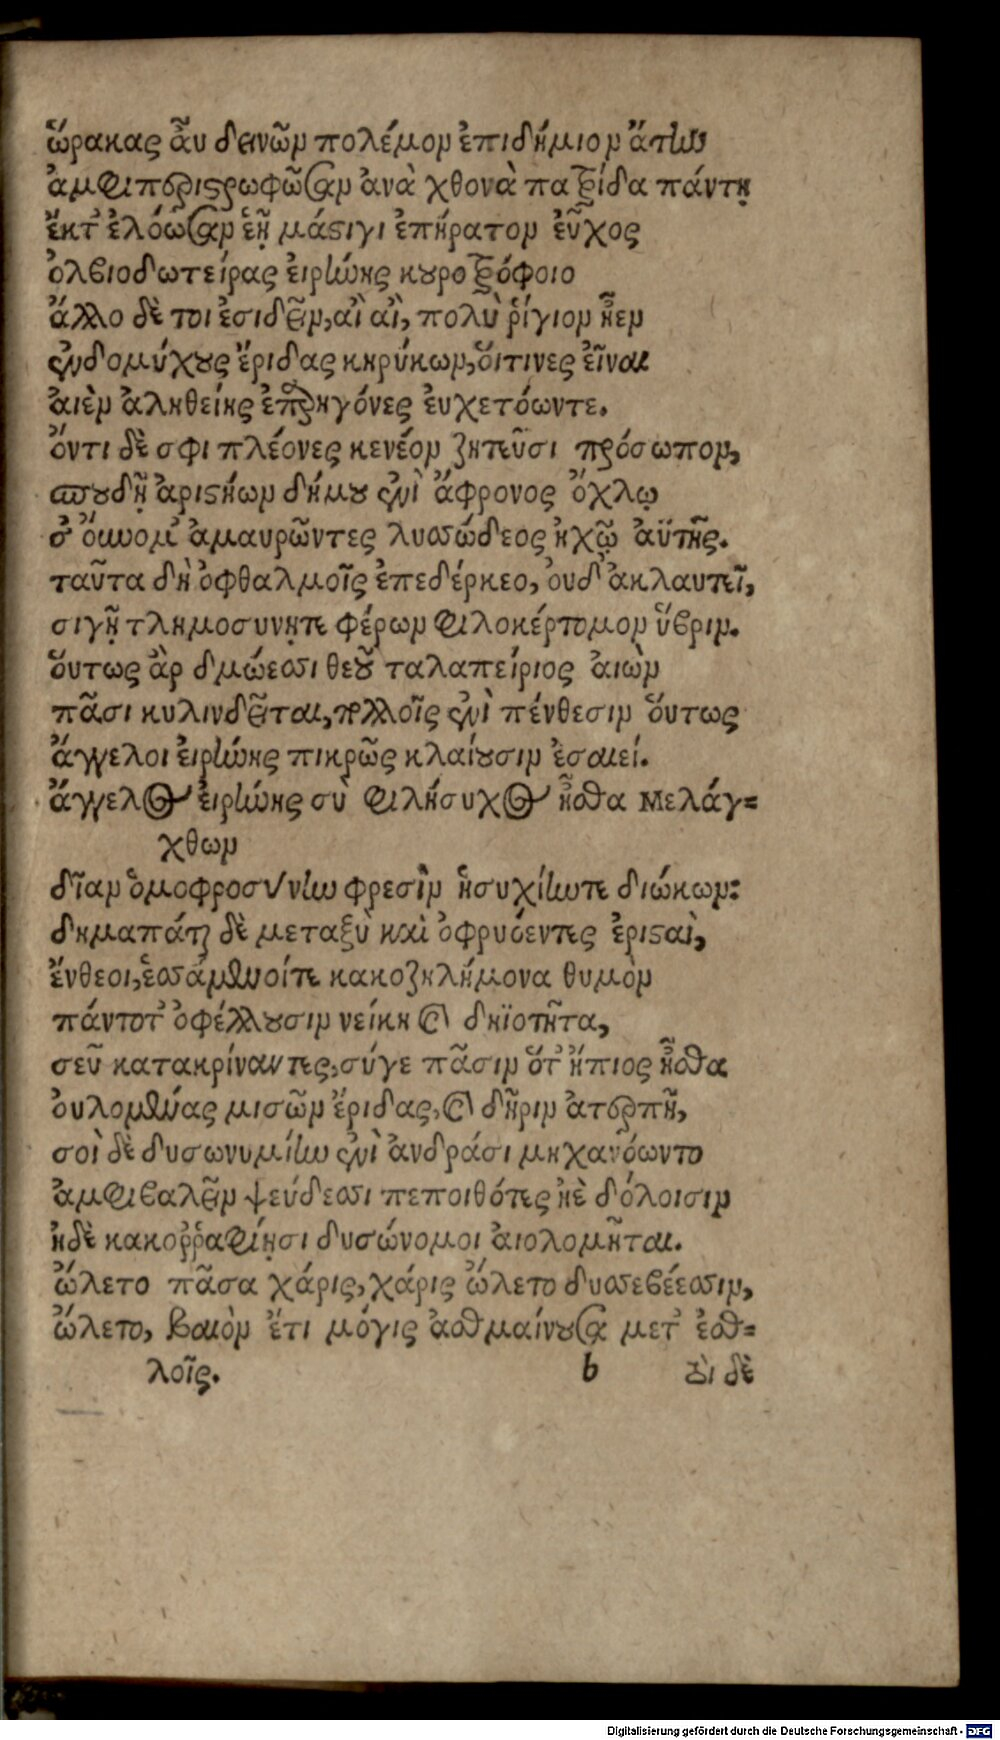 ὥρακας ἂυ δεινῶν πολέμον ἐπιδήμιον ἄτην
ἀμφιπεριστρωφῶσαν ἀνὰ χθονὰ πατρίδα πάντῃ
ἔκτ' ἐλόωσαν ἑῇ μάστιγι ἐπήρατον ἐῦχος
ὀλβιοδωτείρας ἐιρήνης κουροτρόφοιο
ἄλλο δὲ τοι ἐσιδεῖν, αἲ αἲ, πολὺ ῥίγιον ἦεν
ἐνδομύχους ἔριδας κηρύκων, ὅιτινες ἐῖναι
ἀιὲν ἀληθείης ἐπτρηγόνες ἐυχετόωντε.
ὄντι δὲ σφι πλέονες κενέον ζητεῦσι πρόσωπον,
σπουδῇ ἀριστήων δήμου ἐνὶ ἄφρονος ὄχλῳ
σ' ὄυνομ' ἀμαυρῶντες λυσσώδεος ἠχῷ ἀϋτῆς.
ταῦτα δὴ ὀφθαλμοῖς ἐπεδέρκεο, ὀυδ' ἀκλαυτεῖ,
σιγῇ τλημοσυνῃτε φέρων φιλοκέρτομον ὕβριν.
ὅυτως ἂρ δμώεσσι θεοῦ ταλαπείριος ἀιὼν
πᾶσι κυλινδεῖται, πολλοῖς ἐνὶ πένθεσιν ὅυτως
ἄγγελοι ἐιρήνης πικρῶς κλαίουσιν ἐσαιεί.
ἄγγελος ἐιρήνης σὺ φιλήσυχος ἦσθα Μελάγ=
χθων
δῖαν ὁμοφροσύνην φρεσὶν ἡσυχίηντε διώκων:
δημαπάται δὲ μεταξὺ καὶ ὀφρυόεντες ἐρισταὶ,
ἔνθεοι, ἑσσάμενοίτε κακοζηλήμονα θυμὸν
πάντοτ' ὀφέλλουσιν νείκη καὶ δηϊοτῆτα,
σεῦ κατακρίναντες, σύγε πᾶσιν ὅτ' ἤπιος ἦσθα
ὀυλομένας μισῶν ἔριδας, καὶ δῆριν ἀτερπῆ,
σοὶ δὲ δυσωνυμίην ἐνὶ ἀνδράσι μηχανόωντο
ἀμφιβαλεῖν ψεύδεσσι πεποιθότες ἠὲ δόλοισιν
ἠδὲ κακοῤῥαφίῃσι δυσώνομοι ἀιολομῆται.
ὤλετο πᾶσα χάρις, χάρις ὤλετο δυσσεβέεσσιν,
ὤλετο, βαιὸν ἔτι μόγις ἀσθμαίνουσα μετ' ἐσθ=
λοῖς.
b ὁι δὲ
Digitalisierung gefördert durch die Deutsche Forschungsgemeinschaft - DFG